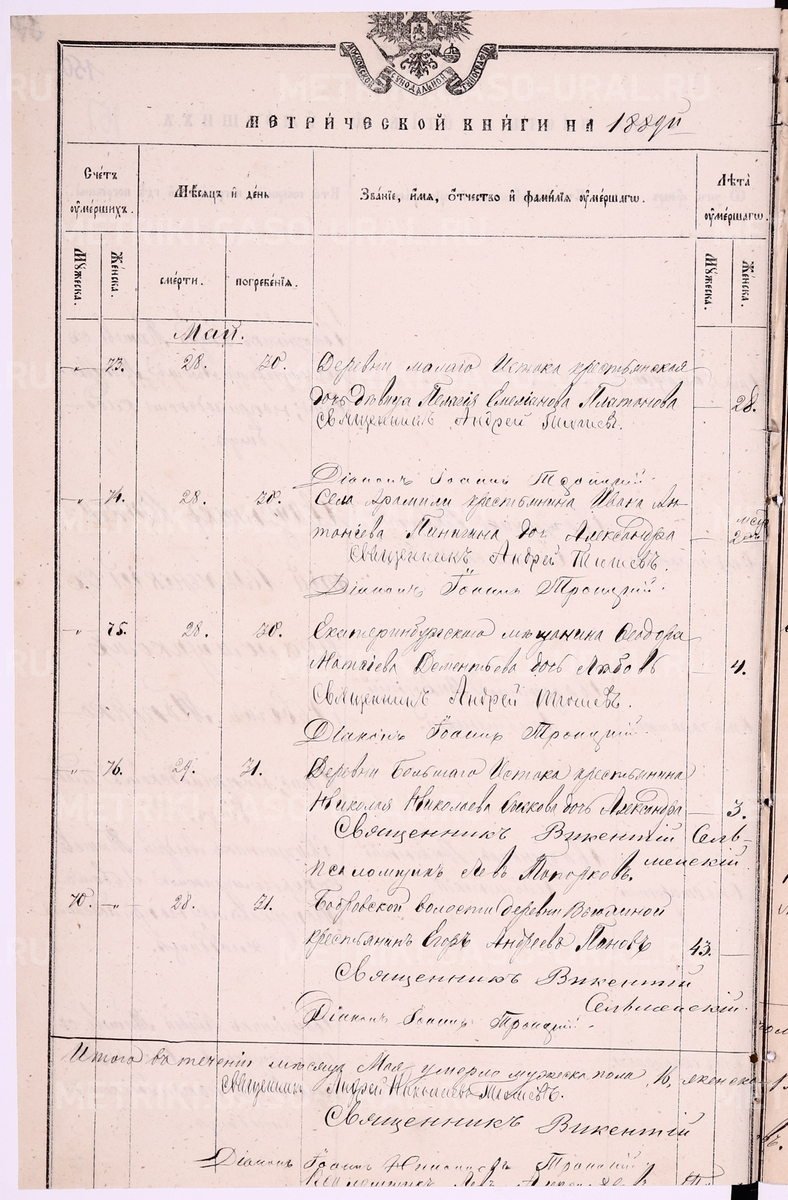 МОСКОВСКОЙ СѴНОДАЛЬНОЙ ТИПОГРАФІИ
МЕТРИ́ЧЕСКОЙ КНИ́ГИ НА 1889й
Счётъ оумершихъ.
Мѣсяцъ и день
Званіе, имя, отчество и фамилія оумершагω.
Лѣта оумершагω.
Мужеска.
Женска.
смерти.
погребенія.
Мужеска.
Женска.
Май.
„ 73. 28. 30. Деревни малаго Истока крестьянская
дочь дѣвица Пелагія Емельянова Платонова — 28.
Священникъ Андрей Тюшевъ.
Діаконъ Іоаннъ Троицкій.
„ 74. 28. 30. Села Арамили крестьянина Ивана Ан-
тоніева Пинигина дочь Александра
Священникъ Андрей Тюшевъ.
Діаконъ Іоаннъ Троицкій.
„ 75. 28. 30. Екатеринбургскаго мѣщанина Ѳеодора
Матѳіева Дементьева дочь Любовь — 4.
Священникъ Андрей Тюшевъ.
Діаконъ Іоаннъ Троицкій.
„ 76. 29. 31. Деревни Большаго Истока крестьянина
Николая Николаева дочь Александра — 3.
Священникъ Викентій Сель-
менскій
псаломщикъ Левъ Топорковъ.
70. — „ — 28. 31. Бобровской волости деревни
крестьянинъ Егоръ Андреевъ Пановъ 43. —
Священникъ Викентій
Сельменскій.
Діаконъ Іоаннъ Троицкій.
Итого въ теченіи мѣсяца Мая умерло мужеска пола 16, женска
Священникъ Андрей Тюшевъ.
Священникъ Викентій
Діаконъ Іоаннъ Троицкій